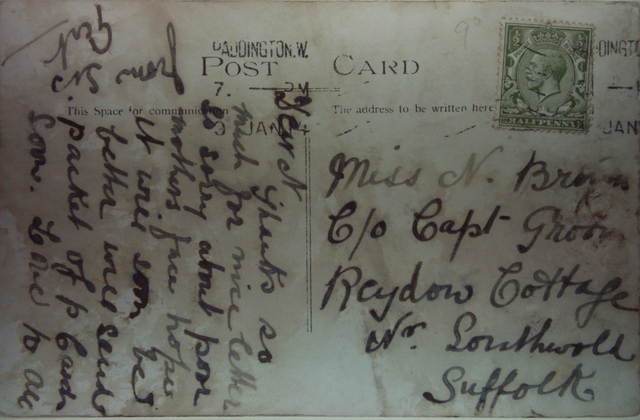 PADDINGTON.W.
7. PM
9 JAN 14
POST CARD
This Space for communication
The address to be written here
HALFPENNY
DDINGTON
JAN
Dear N Thanks so
much for nice letter
So sorry about poor
mothers face hope
it will soon be
better will send
N packet of p Cards
Soon. Love to all
from
Miss N. Brown
C/o Capt Groom
Reydon Cottage
Nr. Southwold
Suffolk